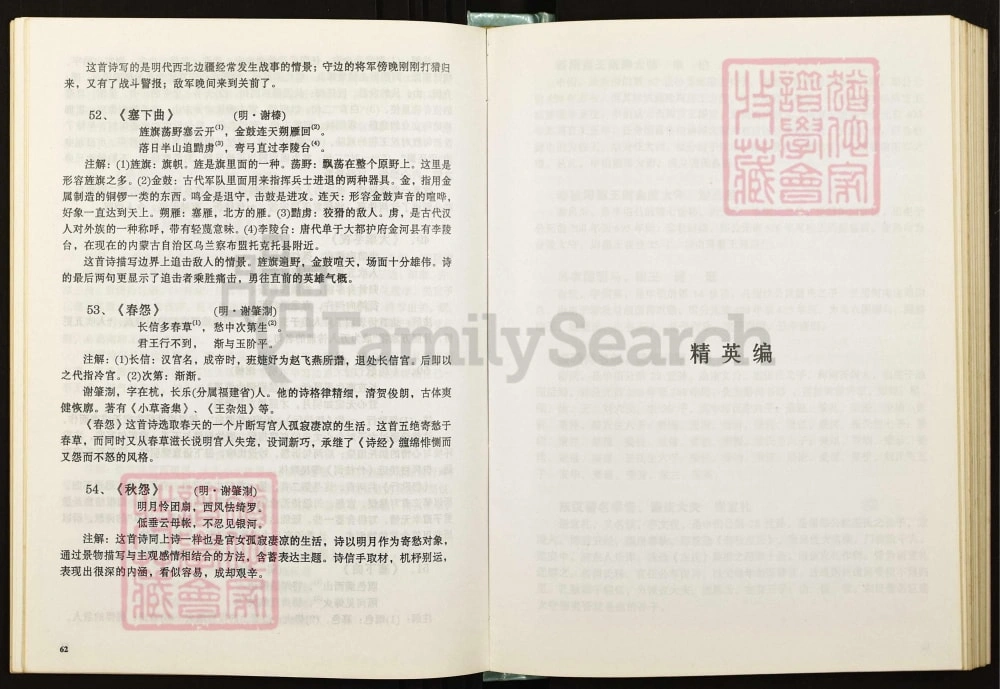 这首诗写的是明代西北边疆经常发生战事的情景；守边的将军傍晚刚刚打猎归
来，又有了战斗警报；敌军晚间来到关前了。
52、《塞下曲》 (明·谢榛)
旌旗荡野塞云开(1)，金鼓连天朔雁回(2)。
落日半山追黠虏(3)，弯弓直过李陵台(4)。
注解：(1)旌旗：旗帜。旌是旗里面的一种。荡野：飘荡在整个原野上。这里是
形容旌旗之多。(2)金鼓：古代军队里面用来指挥兵士进退的两种器具。金，指用金
属制造的铜锣一类的东西。鸣金是退守，击鼓是进攻。连天：形容金鼓声音的喧哗，
好象一直达到天上。朔雁：塞雁，北方的雁。(3)黠虏：狡猾的敌人。虏，是古代汉
人对外族的一种称呼，带有轻蔑意味。(4)李陵台：唐代单于大都护府金河县有李陵
台，在现在的内蒙古自治区乌兰察布盟托克托县附近。
这首诗描写边界上追击敌人的情景。旌旗遍野，金鼓喧天，场面十分雄伟。诗
的最后两句更显示了追击者乘胜痛击，勇往直前的英雄气概。
53、《春怨》 (明·谢肇淛)
长信多春草(1)，愁中次第生(2)。
君王行不到，渐与玉阶平。
注解：(1)长信：汉宫名，成帝时，班婕妤为赵飞燕所谮，退处长信官。后即以
之代指冷官。(2)次第：渐渐。
谢肇淛，字在杭，长乐(分属福建省)人。他的诗格律精细，清贺俊朗，古体爽
健恢廓。著有《小草斋集》、《王杂俎》等。
《春怨》这首诗选取春天的一个片断写官人孤寂凄凉的生活。这首五绝寄愁于
春草，而同时又从春草滋长说明官人失宠，设词新巧，承继了《诗经》缠绵悱恻而
又怨而不怒的风格。
54、《秋怨》 (明·谢肇淛)
明月怜团扇，西风怯绮罗。
低垂云母帐，不忍见银河。
注解：这首诗同上诗一样也是官女孤寂凄凉的生活，诗以明月作为寄愁对象，
通过景物描写与主观感情相结合的方法，含蓄表达主题。诗信手取材，机杼别运，
表现出很深的内涵，看似容易，成却艰辛。
62
精英编
犹他家
谱学会
收藏
FamilySearch